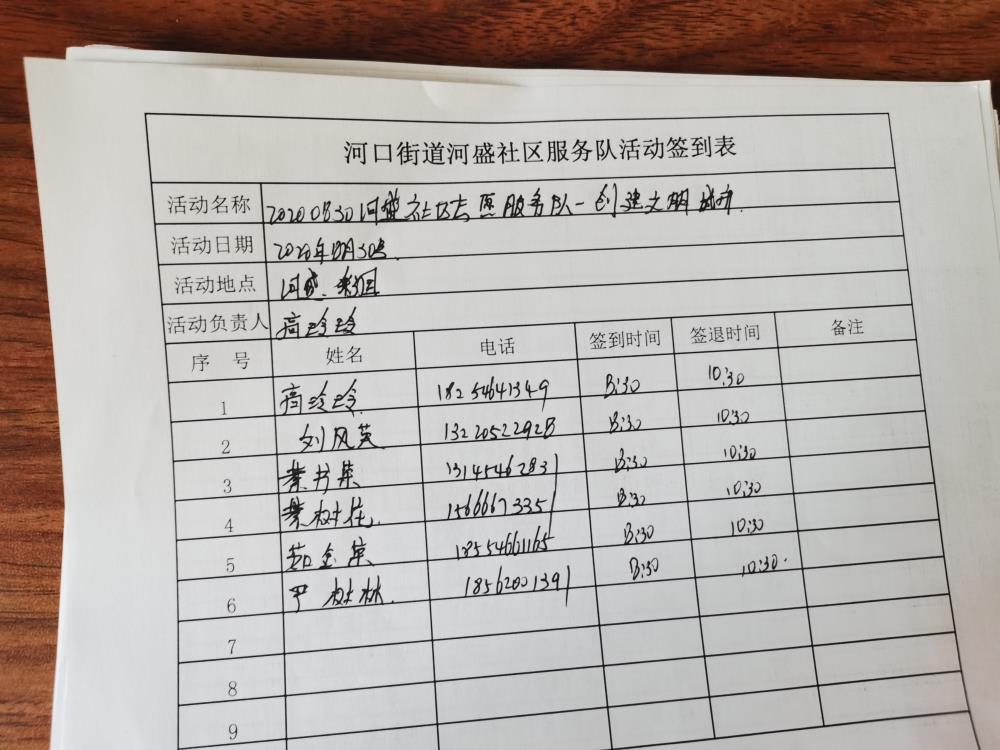 河口街道河盛社区服务队活动签到表
活动名称 20200830河盛社区志愿服务队-创建文明城市
活动日期 2020年8月30号
活动地点 河盛
活动负责人 高玲玲
序 号 姓名 电话 签到时间 签退时间 备注
1 高玲玲 18254641349 8:30 10:30
2 刘风英 13220522928 8:30 10:30
3 13145462831 8:30 10:30
4 15666673351 8:30 10:30
5 18554661165 8:30 10:30
6 尹树林 18562001391 8:30 10:30
7
8
9